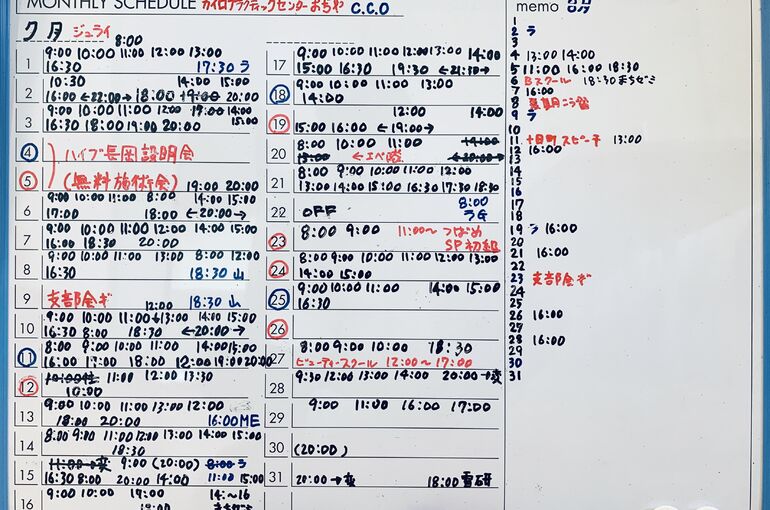 MONTHLY SCHEDULE カイロプラクティックセンターおぢや C.C.O
7月 ジュライ
8:00
1 9:00 10:00 11:00 12:00 13:00
16:30 17:30 ラ
2 10:30 14:00 15:00
16:00 ←22:00→ 18:00 19:00 20:00
3 9:00 10:00 11:00 12:00 13:00 14:00
16:30 18:00 19:00 20:00 15:00
4 ハイブ長岡説明会
5 (無料施術会) 19:00 20:00
6 9:00 10:00 11:00 8:00 14:00 15:00
17:00 18:00 ←20:00→
7 9:00 10:00 11:00 12:00 14:00 15:00
16:00 18:30 20:00
8 9:00 10:00 11:00 13:00 8:00 12:00
16:30 18:30 山
9 支部会ギ 12:00 18:30 山
10 9:00 10:00 11:00 13:00 14:00 15:00
16:30 8:00 18:30 ←20:00→
11 8:00 9:00 10:00 11:00 14:00 15:00
16:00 17:00 18:00 12:00 19:00 20:00
12 11:00 12:00 13:30
10:00
13 9:00 10:00 11:00 13:00 12:00
18:00 20:00 16:00 ME
14 8:00 9:00 11:00 12:00 13:00 14:00 15:00
18:30
15 11:00→変 9:00 (20:00) 8:00 ラ
16:30 8:00 20:00 14:00 11:00 15:00
16 9:00 10:00 19:00 14:~16
17 9:00 10:00 11:00 12:00 13:00 14:00
15:00 16:30 19:30 ←21:30→
18 9:00 10:00 11:00 13:00
14:00
19 12:00 14:00
15:00 16:00 ←19:00→
20 8:00 10:00 11:00 14:00
15:00 ←20:00→
21 8:00 9:00 10:00 11:00 12:00 13:00
13:00 14:00 15:00 16:30 17:30 18:30
22 OFF 8:00
ラG
23 8:00 9:00 11:00~つばめ
SP初級
24 8:00 9:00 10:00 11:00 12:00 13:00
14:00 15:00
25 9:00 10:00 11:00 14:00 15:00
16:30
26
27 8:00 9:00 10:00 18:30
ビューティースクール 12:00~17:00
28 9:30 12:00 13:00 14:00 20:00→変
29 9:00 11:00 16:00 17:00
30 (20:00)
31 20:00→変 18:00 雪研
memo 8月
1
2 ラ
3
4 13:00 14:00
5 11:00 16:00 18:30
6 Bスクール 18:30 まちゼミ
7 16:00
8
9 ラ
10
11 十日町スピー子 13:00
12 16:00
13
14
15
16
17
18
19 ラ 16:00
20
21 16:00
22
23 支部会ギ
24
25
26 16:00
27
28 16:00
29
30
31